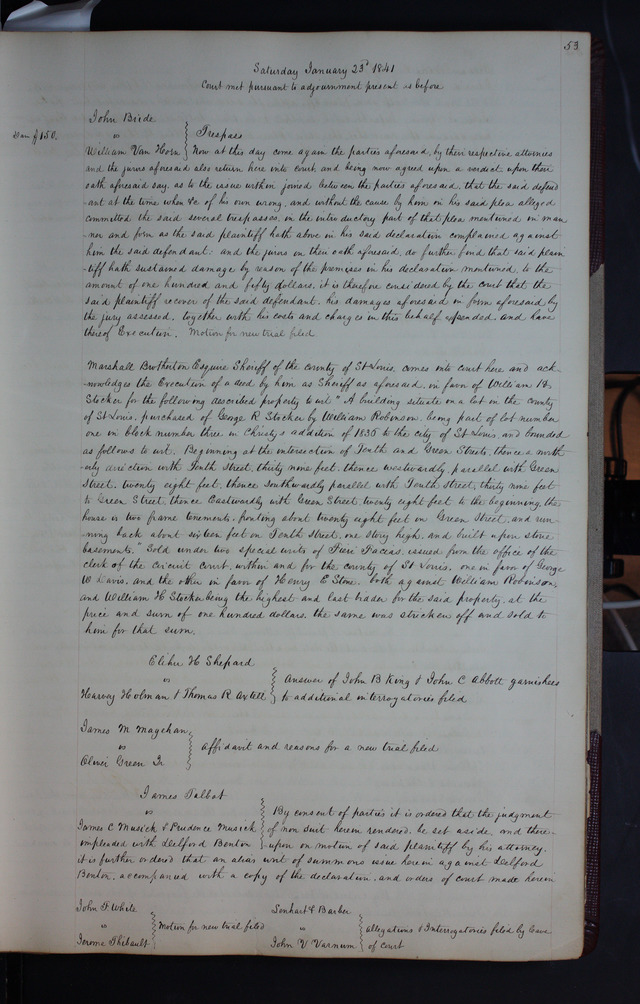 53
Saturday January 23d 1841
Court met pursuant to adjournment present as before
John Birde
vs } Trespass
Dam $150.
William Van Horn } Now at this day come again the parties aforesaid, by their respective attornies
and the jurors aforesaid also return here into court and being now agreed upon a verdict upon their
oath aforesaid say, as to the issue within joined between the parties aforesaid, that the said defend
ant at the time when &c of his own wrong, and without the cause by him in his said plea alleged
committed the said several trespasses, in the introductory part of that plea mentioned in man
ner and form as the said plaintiff hath above in his said declaration complained against
him the said defendant. and the jurors on their oath aforesaid, do further find that said plain
tiff hath sustained damage by reason of the premises in his declaration mentioned, to the
amount of one hundred and fifty dollars, it is therefore considered by the court that the
said plaintiff recover of the said defendant, his damages aforesaid in form aforesaid by
the jury assessed, together with his costs and charges in this behalf expended, and have
thereof Execution. Motion for new trial filed
Marshall Brotherton Esquire Sheriff of the county of St Louis, comes into court here and ack
nowledges the Execution of a deed by him as Sheriff as aforesaid, in favor of William H.
Stocker for the following described property to wit "A building situate on a lot in the county
of St Louis, purchased of George R Stocker by William Robinson, being part of lot number
one in block number three in Christy's addition of 1836 to the city of St Louis and bounded
as follows to wit. Beginning at the intersection of Tenth and Green Streets, thence a north
erly direction with Tenth Street, thirty nine feet, thence westwardly, parallel with Green
Street, twenty eight feet, thence Southwardly parallel with Tenth Street, thirty nine feet
to Green Street, thence Eastwardly with Green Street, twenty eight feet to the beginning, the
house is two frame tenements, fronting about twenty eight feet on Green Street, and run
ning back about sixteen feet on Tenth Street, one story high, and built upon stone
basements." Sold under two special writs of Fieri Facias, issued from the office of the
clerk of the Circuit Court, within and for the county of St Louis, one in favor of George
W Davis, and the other in favor of Henry E Stone, both against William Robinson,
and William H Stocker being the highest and last bidder for the said property, at the
price and sum of one hundred dollars, the same was stricken off and sold to
him for that sum.
Elihu H Shepard
vs } Answer of John B King & John C Abbott garnishees
Harvey Holman & Thomas R Axtell } to additional interrogatories filed
James M Magehan
vs } Affidavit and reasons for a new trial filed
Oliver Green Jr
James Talbot
vs } By consent of parties it is ordered that the judgment
James C Musick & Prudence Musick } of non suit herein rendered, be set aside, and there-
impleaded with Delford Benton } upon on motion of said plaintiff by his attorney,
it is further ordered that an alias writ of summons issue herein against Delford
Benton, accompanied with a copy of the declaration, and orders of court made herein
John F. White
vs } Motion for new trial filed
Jerome Thibault
& Barber
vs } Allegations & Interrogatories filed by leave
John V Varnum } of court